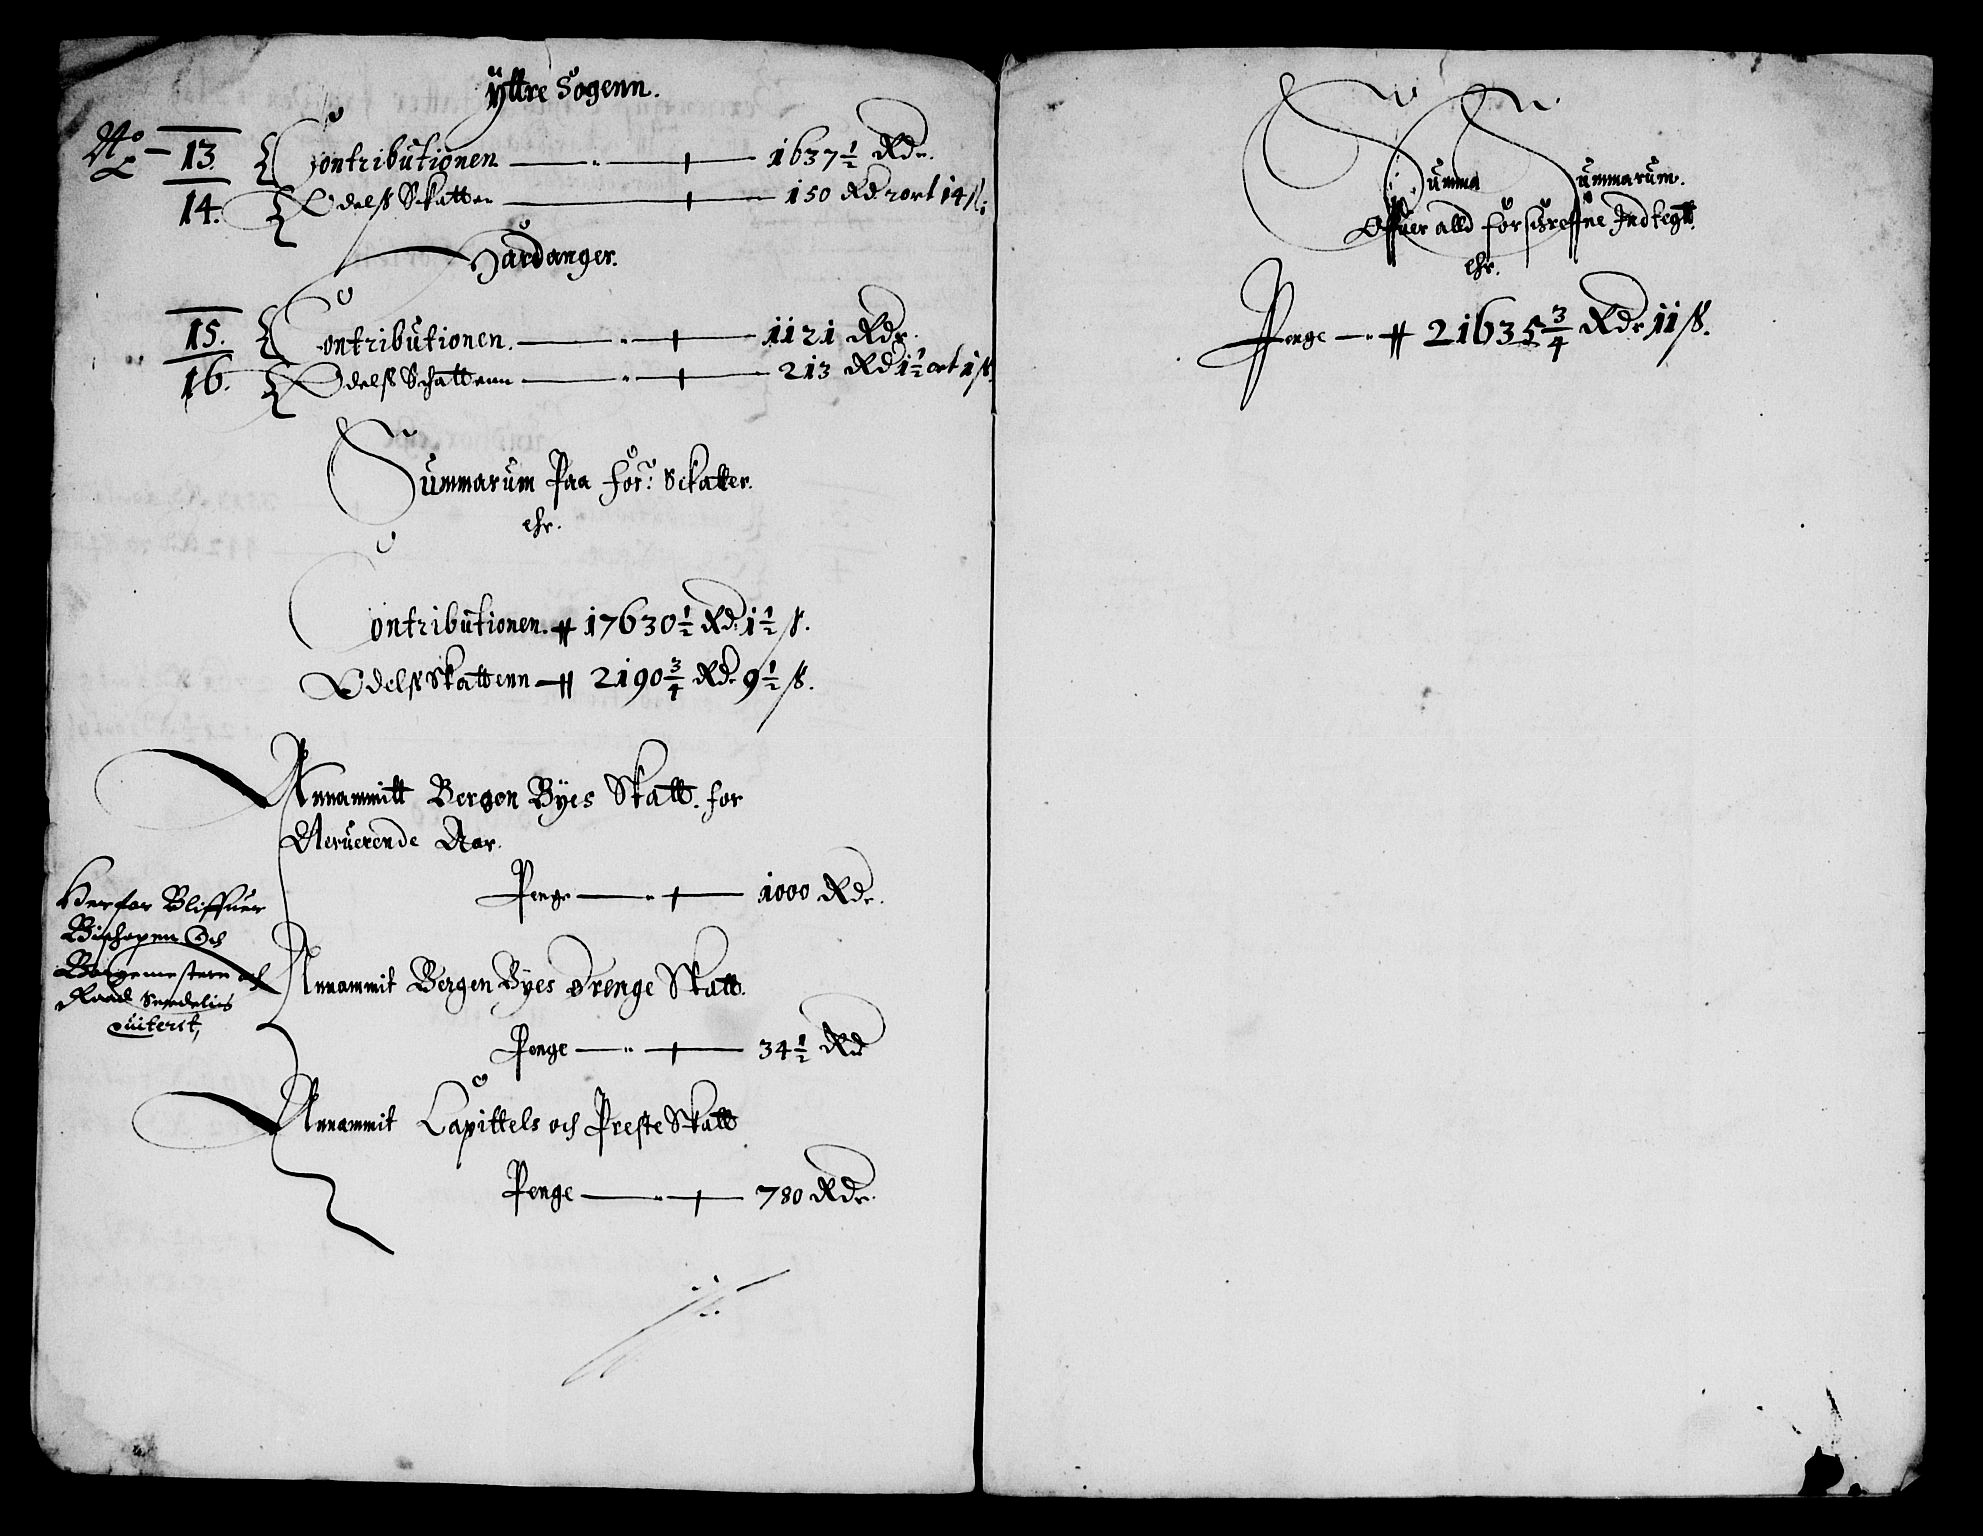 Ÿttre Sogenn.
No 13 Contributionen 1637½ Rdr.
14. Odelss Skatten 150 Rd 2 ort 14 ß:
Hardanger.
15. Contributionen. 1121 Rdr.
16. Odelss Schattenn 213 Rd 1½ ort 1 ß.
Summarum Paa for: Skatter.
ehr.
Contributionen. 17630½ Rdr 1½ ß.
Odelss Skattenn 2190¾ Rdr 9½ ß.
Annammitt Bergen Byes Skatt. for
Neruerende Aar.
Penge 1000 Rdr.
Herfor Bliffuer
Bishopen Och
Borgemestere och
Raad Semdelies
quiterit,
Annammit Bergen Byes Drenge Skatt.
Penge 34½ Rd
Annammit Capittels och Preste Skatt
Penge 780 Rdr.
Summa Summarum.
Offuer alld forschreffne Indtegtt.
ehr.
Penge 21635¾ Rdr 11 ß.